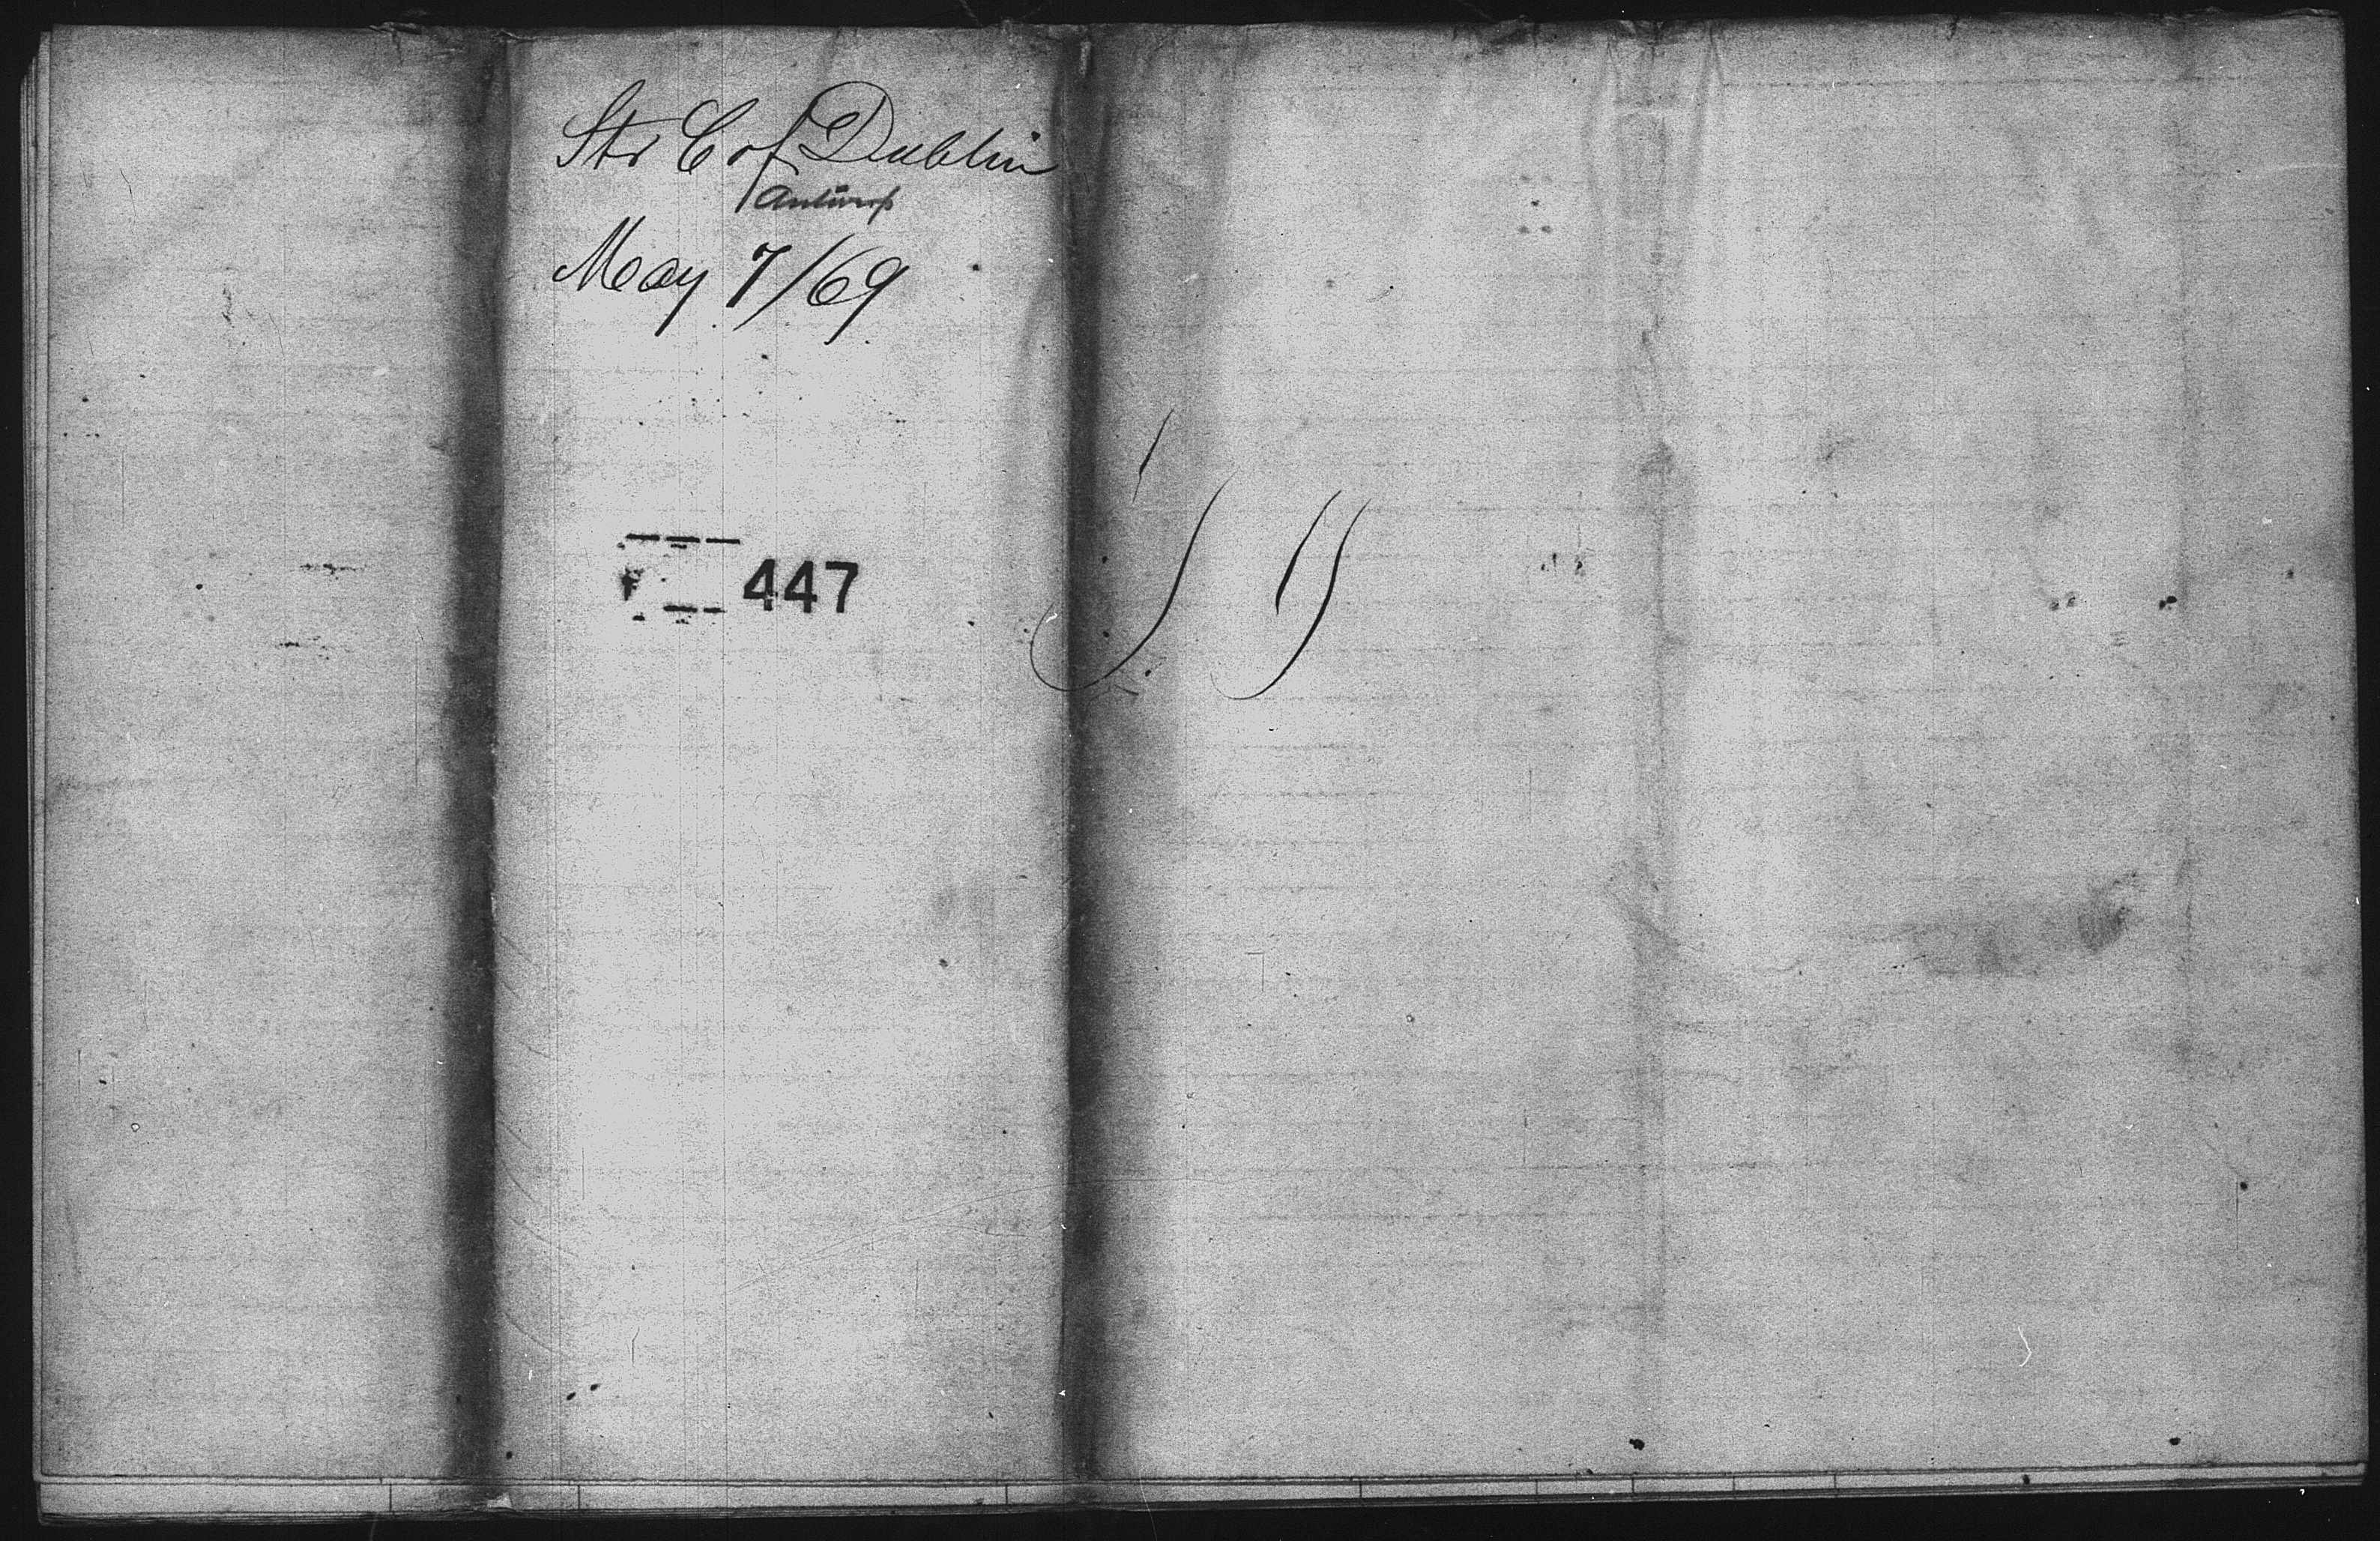 Str C of Dublin
Antwerp
May 7/69
447